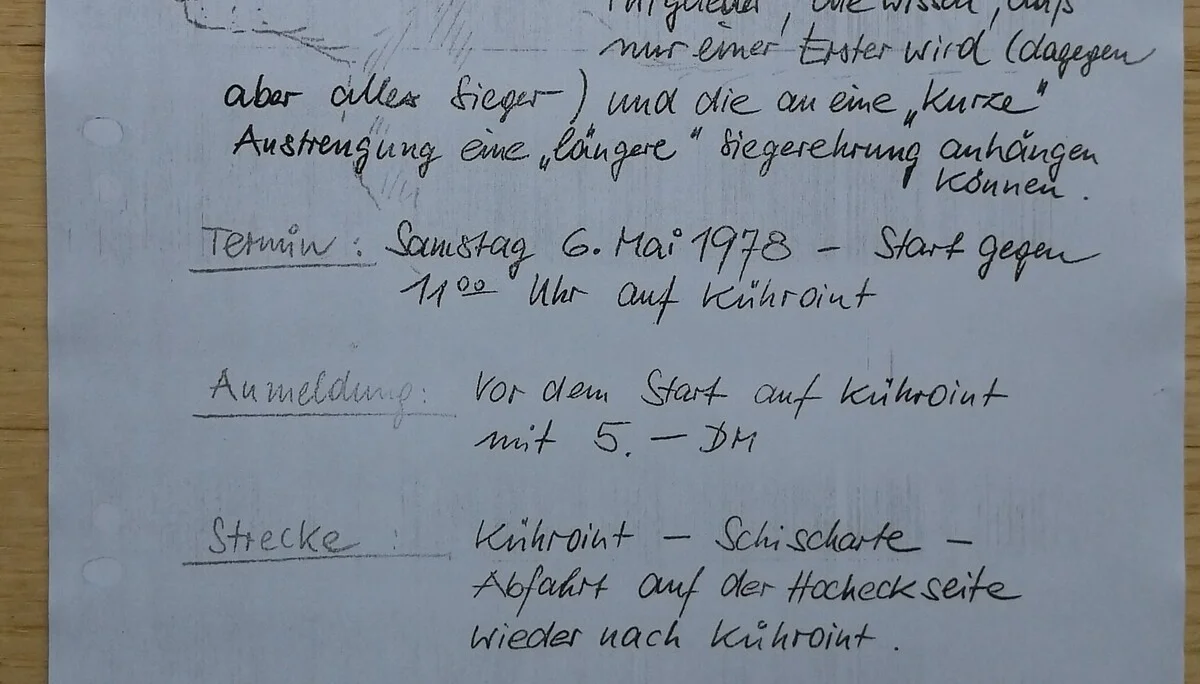 Mitglieder, die wissen, daß
nur einer Erster wird (dagegen
aber alles Sieger-) und die an eine „kurze"
Anstrengung eine „längere" Siegerehrung anhängen
können.
Termin: Samstag 6. Mai 1978 - Start gegen
11 00 Uhr auf Kühroint
Anmeldung: Vor dem Start auf Kühroint
mit 5.- DM
Strecke: Kühroint - Schischarte -
Abfahrt auf der Hocheckseite
wieder nach Kühroint.